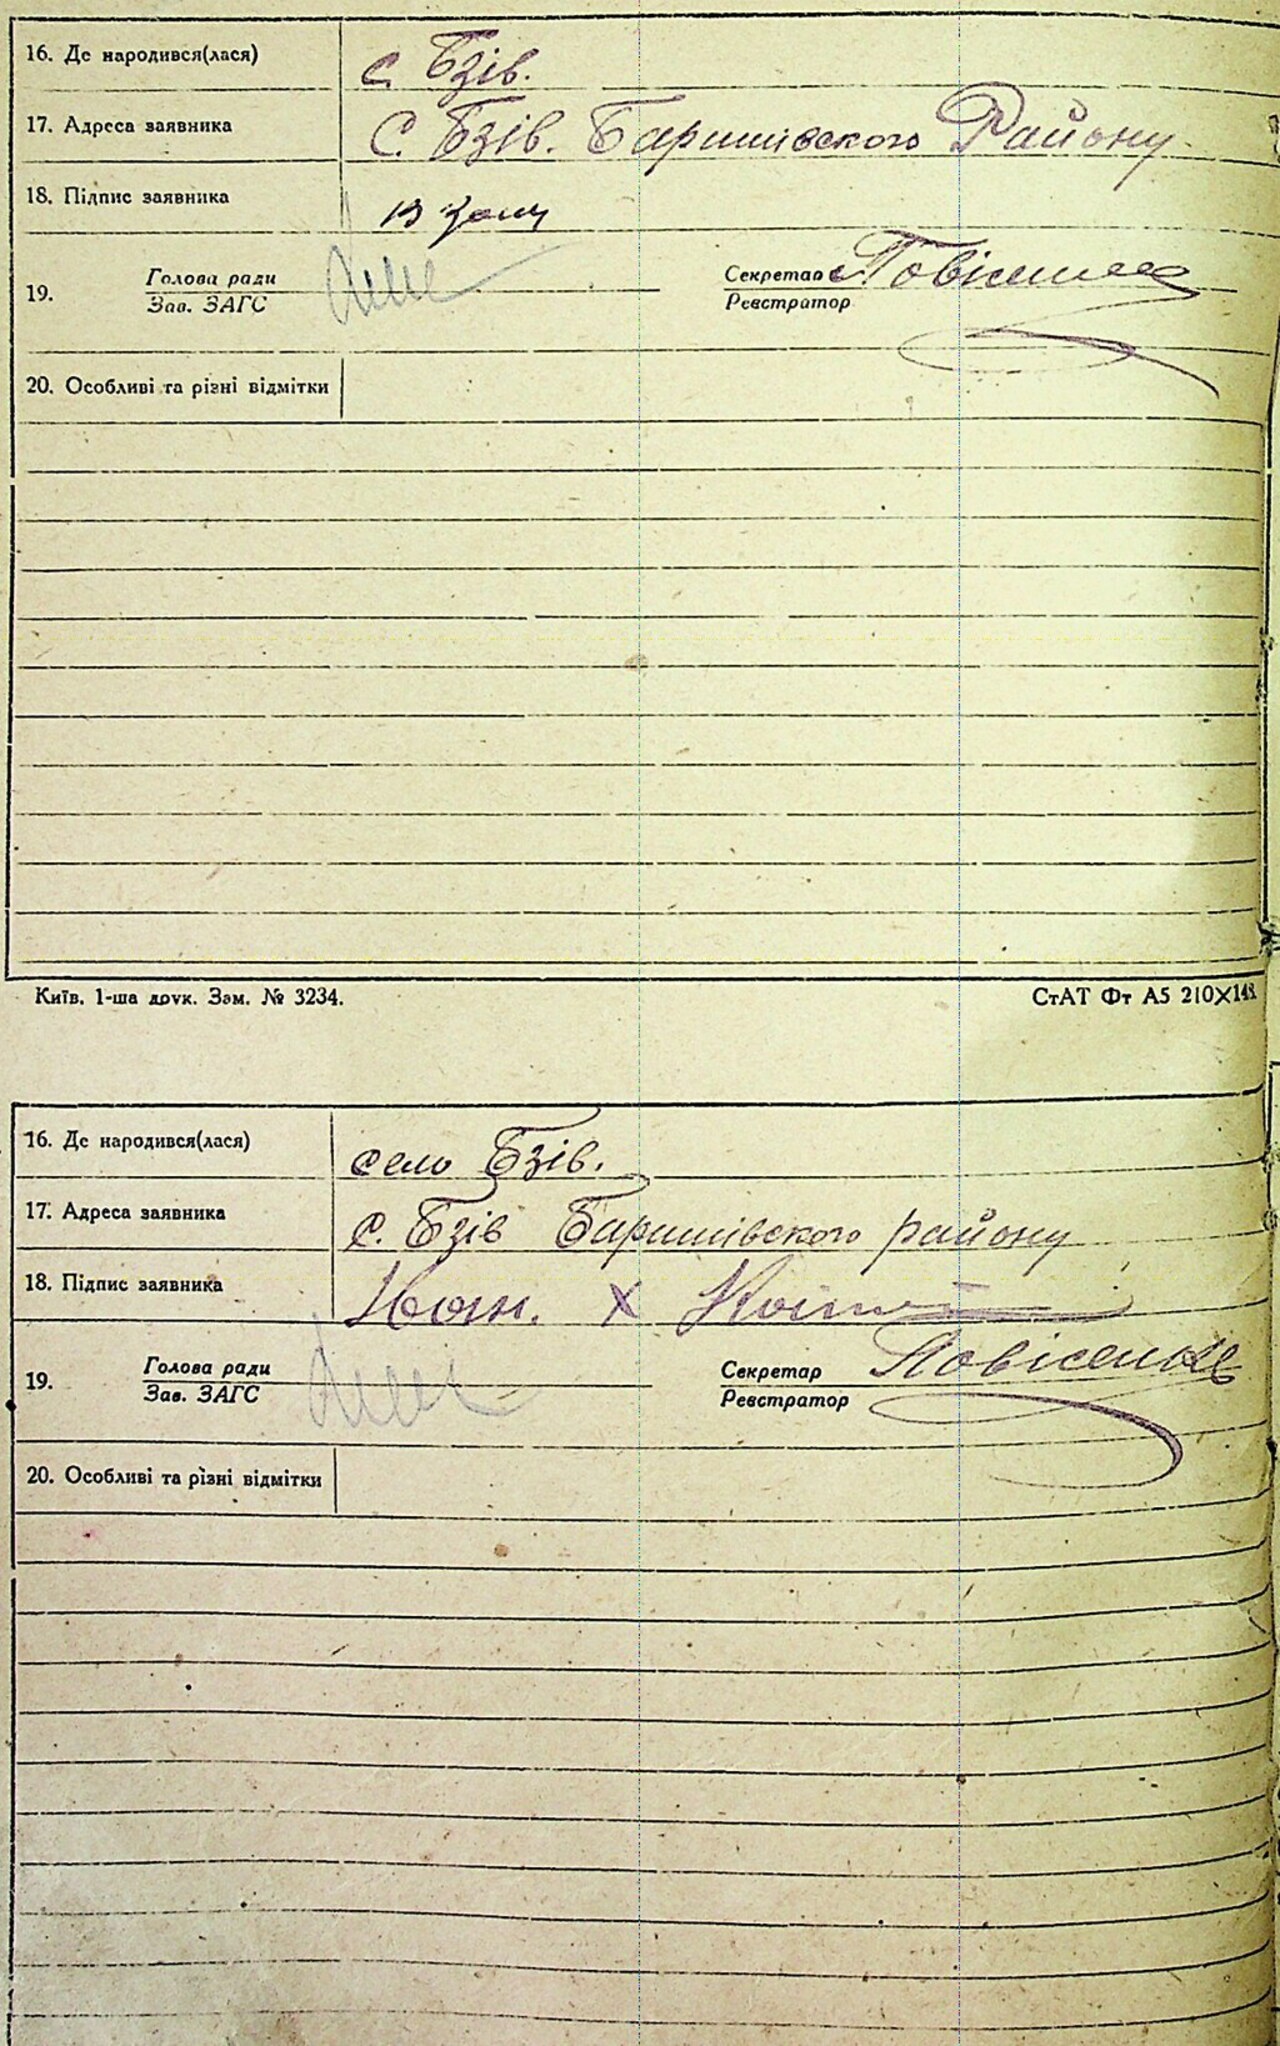 16. Де народився(лася) с. Бзів.
17. Адреса заявника С. Бзів. Баришівского Району
18. Підпис заявника
19. Голова ради Секретар Повісенко
Зав. ЗАГС Реєстратор
20. Особливі та різні відмітки
Київ. 1-ша друк. Зам. № 3234. СтАТ Фт А5 210×148
16. Де народився(лася) село Бзів.
17. Адреса заявника с. Бзів Баришівского району
18. Підпис заявника х
19. Голова ради Секретар Повісенко
Зав. ЗАГС Реєстратор
20. Особливі та різні відмітки